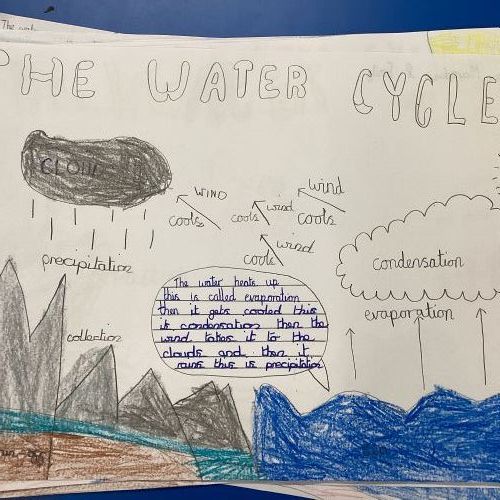 The work
THE WATER CYCLE
CLOUD
WIND
wind
cools
cools
wind
cools
wind
cools
precipitation
condensation
evaporation
collection
The water heats up
this is called evaporation
then it gets cooled this
is condensation then the
wind takes it to the
clouds and then it
rains this is precipitation